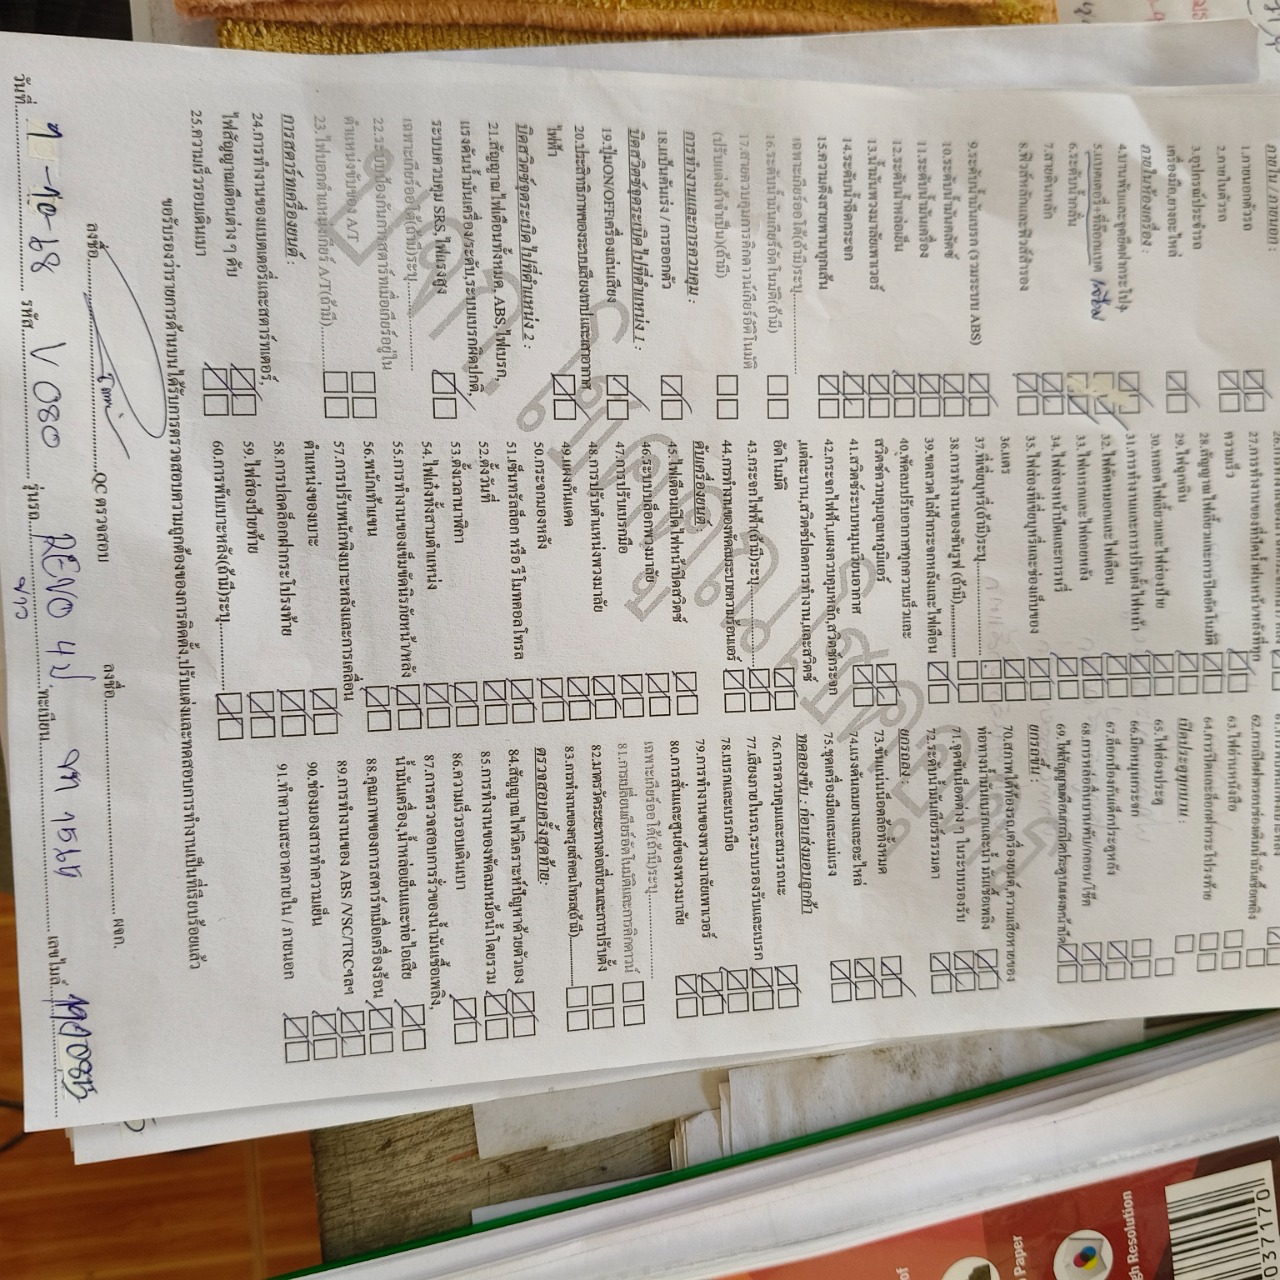 ภายใน / ภายนอก :
1.ภายนอกตัวรถ
2.ภายในตัวรถ
3.อุปกรณ์ประจำรถ
เครื่องมือ,ยางอะไหล่
ภายในห้องเครื่อง :
4.บานพับและจุดยึดฝากระโปรง
5.แบตเตอรี่+ขั้วล็อกแบต
6.ระดับน้ำกลั่น
7.สายดินหลัก
8.ฟิวส์หลักและฟิวส์สำรอง
9.ระดับน้ำมันเบรก (รวมระบบ ABS)
10.ระดับน้ำมันคลัตช์
11.ระดับน้ำมันเครื่อง
12.ระดับน้ำหล่อเย็น
13.น้ำมันพวงมาลัยพาวเวอร์
14.ระดับน้ำฉีดกระจก
15.ความตึงสายพานทุกเส้น
เฉพาะเกียร์ออโต้(ถ้ามี)ระบุ
16.ระดับน้ำมันเกียร์อัตโนมัติ(ถ้ามี)
17.สายควบคุมการคิกดาวน์เกียร์อัตโนมัติ
(ปรับแต่งถ้าจำเป็น)(ถ้ามี)
การทำงานและการควบคุม :
18.แป้นคันเร่ง / การออกตัว
บิดสวิตช์จุดระเบิดไปที่ตำแหน่ง 1 :
19.ปุ่มON/OFFเครื่องเล่นเสียง
20.ประสิทธิภาพของระบบเสียง,เทปและเสาอากาศ
ไฟฟ้า
บิดสวิตช์จุดระเบิดไปที่ตำแหน่ง 2 :
21.สัญญาณไฟเตือนทั้งหมด, ABS,ไฟเบรก,
แรงดันน้ำมันเครื่อง/ระดับ,ระบบเบรกผิดปกติ,
ระบบควบคุม SRS,ไฟแรงสูง
เฉพาะเกียร์ออโต้(ถ้ามี)ระบุ
22.ระบบป้องกันการสตาร์ทเมื่อเกียร์อยู่ใน
ตำแหน่งขับของ A/T
23.ไฟบอกตำแหน่งเกียร์ A/T(ถ้ามี)
การสตาร์ทเครื่องยนต์ :
24.การทำงานของแบตเตอรี่และสตาร์ทเตอร์,
ไฟสัญญาณเตือนต่าง ๆ ดับ
25.ความเร็วรอบเดินเบา
27.การทำงานของที่ปัดน้ำฝนหน้า/หลังที่ทุก
ความเร็ว
28.สัญญาณไฟเลี้ยวและการปิดอัตโนมัติ
29.ไฟฉุกเฉิน
30.หลอดไฟเลี้ยวและไฟส่องป้าย
31.การทำงานและการปรับตั้งไฟหน้า
32.ไฟตัดหมอกและไฟเตือน
33.ไฟเบรกและไฟถอยหลัง
34.ไฟส่องหน้าปัดและการหรี่
35.ไฟส่องที่เขี่ยบุหรี่และช่องเก็บของ
36.แตร
37.ที่เขี่ยบุหรี่(ถ้ามี)ระบุ
38.การทำงานของซันรูฟ (ถ้ามี)
39.ขดลวดไล่ฝ้ากระจกหลังและไฟเตือน
40.พัดลมปรับอากาศทุกความเร็วและ
สวิตช์ควบคุมอุณหภูมิแอร์
41.สวิตช์ระบบหมุนเวียนอากาศ
42.กระจกไฟฟ้า,แผงควบคุมหลัก,สวิตช์กระจก
แต่ละบาน,สวิตช์ปลดการทำงาน,และสวิตช์
อัตโนมัติ
43.กระจกไฟฟ้า(ถ้ามี)ระบุ
44.การทำงานของพัดลมระบายความร้อนแอร์
ดับเครื่องยนต์ :
45.ไฟเตือนเปิดไฟหน้าปิดสวิตช์
46.ระบบล็อกพวงมาลัย
47.การปรับเบรกมือ
48.การปรับตำแหน่งพวงมาลัย
49.แผงกันแดด
50.กระจกมองหลัง
51.เซ็นทรัลล็อก หรือ รีโมทคอลโทรล
52.ตั้งวันที่
53.ตั้งเวลานาฬิกา
54.ไฟเก๋งทั้งสามตำแหน่ง
55.การทำงานของเข็มขัดนิรภัยหน้า/หลัง
56.พนักเท้าแขน
57.การปรับพนักพิงเบาะหลังและการเคลื่อน
ตำแหน่งของเบาะ
58.การปลดล็อกฝากระโปรงท้าย
59.ไฟส่องป้ายท้าย
60.การพับเบาะหลัง(ถ้ามี)ระบุ
63.ไฟอ่านหนังสือ
64.การปิดและล็อกฝากระโปรงท้าย
เปิดประตูทุกบาน :
65.ไฟส่องประตู
66.มือหมุนกระจก
67.ล็อกป้องกันเด็กประตูหลัง
69.ไฟสัญญาณเตือนการปิดประตูบนแผงหน้าปัด
ยกรถขึ้น :
70.สภาพใต้ท้องรถ,เครื่องยนต์,ความเสียหายของ
ท่อทางน้ำมันเบรกและน้ำมันเชื้อเพลิง
71.จุดขันน็อตต่าง ๆ ในระบบรองรับ
72.ระดับน้ำมันเกียร์ธรรมดา
ยกรถลง :
73.ขันแน่นน็อตล้อทั้งหมด
74.แรงดันลมยางและอะไหล่
75.ชุดเครื่องมือและแม่แรง
ทดลองขับ : ก่อนส่งมอบลูกค้า
76.การควบคุมและสมรรถนะ
77.เสียงภายในรถ,ระบบรองรับและเบรก
78.เบรกและเบรกมือ
79.การทำงานของพวงมาลัยเพาเวอร์
80.การสั่นและศูนย์ของพวงมาลัย
เฉพาะเกียร์ออโต้(ถ้ามี)ระบุ
81.การเปลี่ยนเกียร์อัตโนมัติและการคิกดาวน์
82.มาตรวัดระยะทางต่อเที่ยวและการปรับตั้ง
83.การทำงานของครูยส์คอนโทรล(ถ้ามี)
ตรวจสอบครั้งสุดท้าย :
84.สัญญาณไฟวิเคราะห์ปัญหาด้วยตัวเอง
85.การทำงานของพัดลมหม้อน้ำโดยรวม
86.ความเร็วรอบเดินเบา
87.การตรวจสอบการรั่วของน้ำมันเชื้อเพลิง,
น้ำมันเครื่อง,น้ำหล่อเย็นและท่อไอเสีย
88.คุณภาพของการสตาร์ทเมื่อเครื่องร้อน
89.การทำงานของ ABS /VSC/TRCฯลฯ
90.ช่องมองสารทำความเย็น
91.ทำความสะอาดภายใน / ภายนอก
ขอรับรองว่ารายการด้านบนได้รับการตรวจสอบความถูกต้องของการติดตั้ง,ปรับแต่งและทดสอบการทำงานเป็นที่เรียบร้อยแล้ว
ลงชื่อ QC ตรวจสอบ ลงชื่อ ผจก.
วันที่ 7-10-68 รหัส V 080 รุ่นรถ REVO 4ป ทะเบียน เลขไมล์
ขาว
Paper
gh Resolution
037170